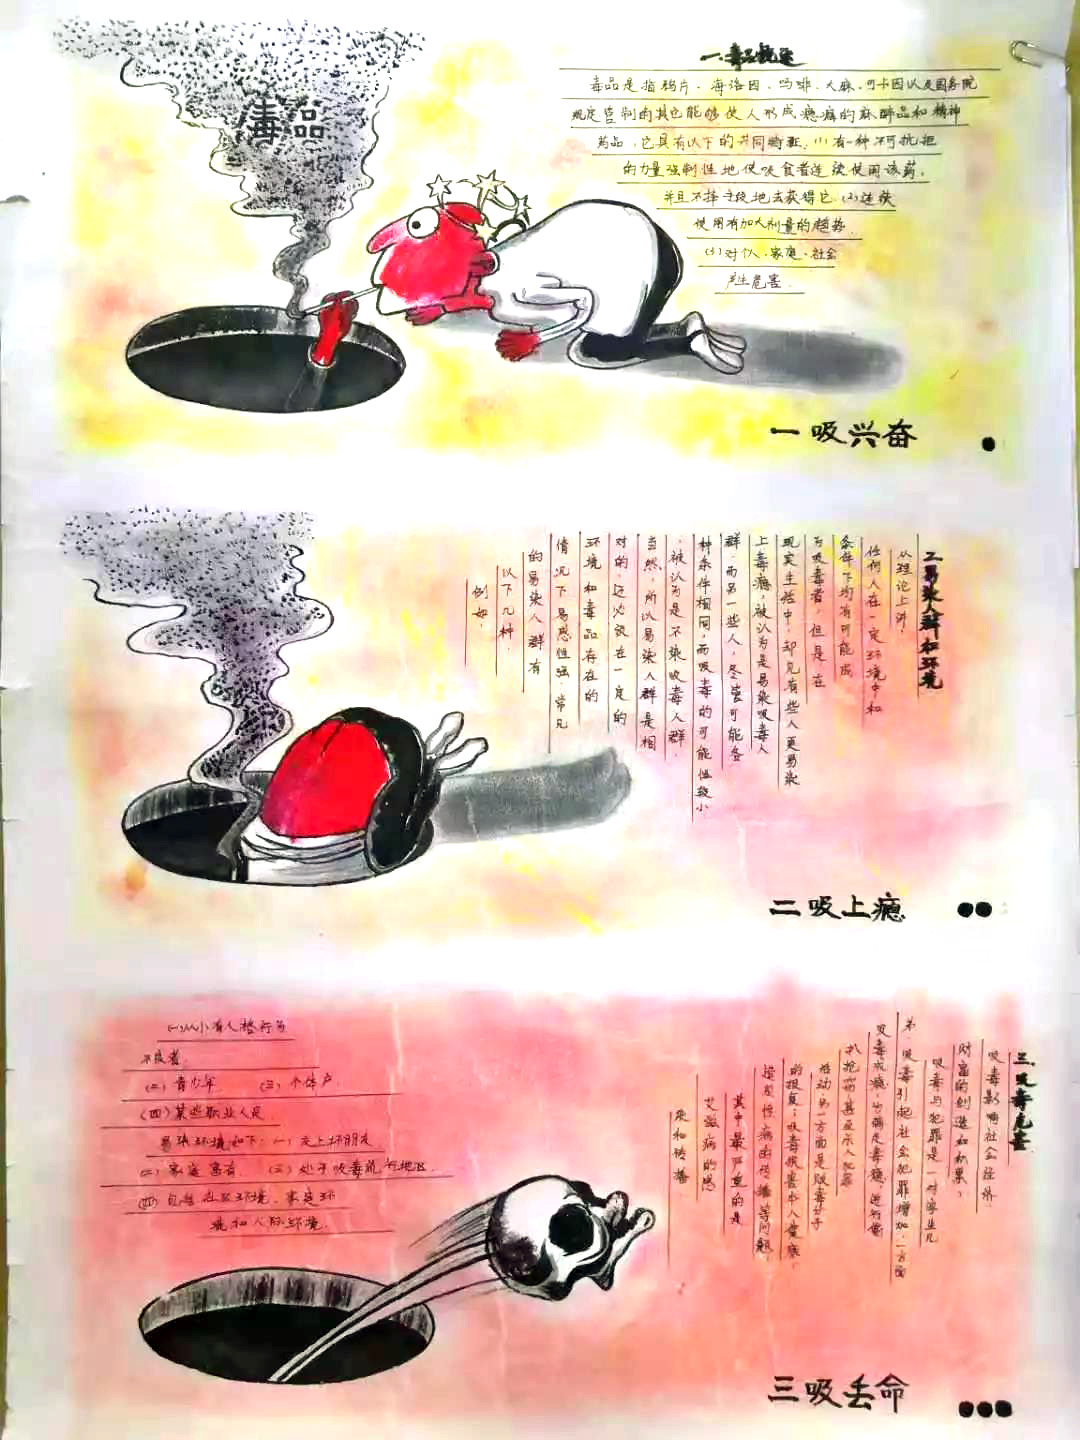 毒品
一.毒品概述
毒品是指鸦片、海洛因、吗啡、大麻、可卡因以及国务院
规定管制的其它能够使人形成瘾癖的麻醉品和精神
药品,它具有以下的共同特征:(1)有一种不可抗拒
的力量强制性地使吸食者连续使用该药,
并且不择手段地去获得它.(2)连续
使用有加大剂量的趋势.
(3)对个人、家庭、社会
产生危害.
一吸兴奋
二.易染人群和环境
从理论上讲,
任何人在一定环境中和
条件下均有可能成
为吸毒者,但是在
现实生活中,却只有些人更易染
上毒瘾,被认为是易染吸毒人
群,而另一些人,尽管可能各
种条件相同,而吸毒的可能性较小
,被认为是不染吸毒人群.
当然,所以易染人群是相
对的,还必须在一定的
环境和毒品存在的
情况下易感性强.常见
的易染人群有
以下几种.
例如:
二吸上瘾
(一)从小有人格行为
不良者.
(二)青少年. (三)个体户.
(四)某些职业人员.
易染环境如下:(一)交上坏朋友.
(二)家庭富有. (三)处于吸毒流行地区.
(四)包括社区环境、家庭环
境和人际环境.
三.吸毒危害
吸毒影响社会经济
财富的创造和积累;
吸毒与犯罪是一对孪生儿
弟,吸毒引起社会犯罪增加.一方面
扒抢窃甚至杀人犯罪
活动另一方面是贩毒分子
的报复;吸毒损害本人健康,
其中最严重的是
艾滋病的感
染和传播
三吸丢命